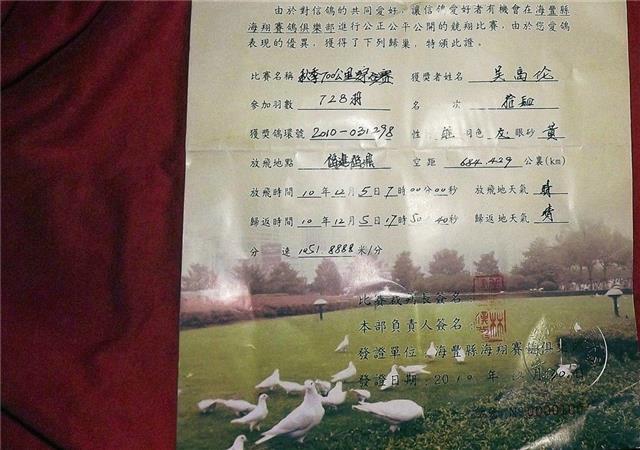 由於對信鴿的共同愛好，讓信鴿愛好者有機會在海豐縣
海翔賽鴿俱樂部進行公正公平公開的競翔比賽，由於您愛鴿
表現的優異，獲得了下列歸巢，特頒此證。
比賽名稱 秋季700公里 賽 獲獎者姓名 吴禹伦
參加羽數 728羽 名 次
獲獎鴿環號 2010-031298 性 雄 羽色 灰 眼砂 黃
放飛地點 空距 684.429 公裏(km)
放飛時間 10 年 12 月 5 日 7 時 00 分 00 秒 放飛地天氣 晴
歸返時間 10 年 12 月 5 日 17 時 50 分 40 秒 歸返地天氣 晴
分 速 1051.8888 米/分
比賽裁判長簽名:
本部負責人簽名:
發證單位: 海豐縣海翔賽鴿俱
發證日期: 2010 年